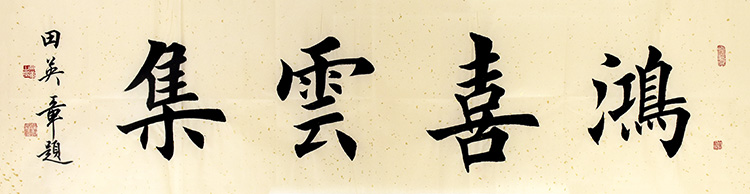 鴻喜雲集
田英章題